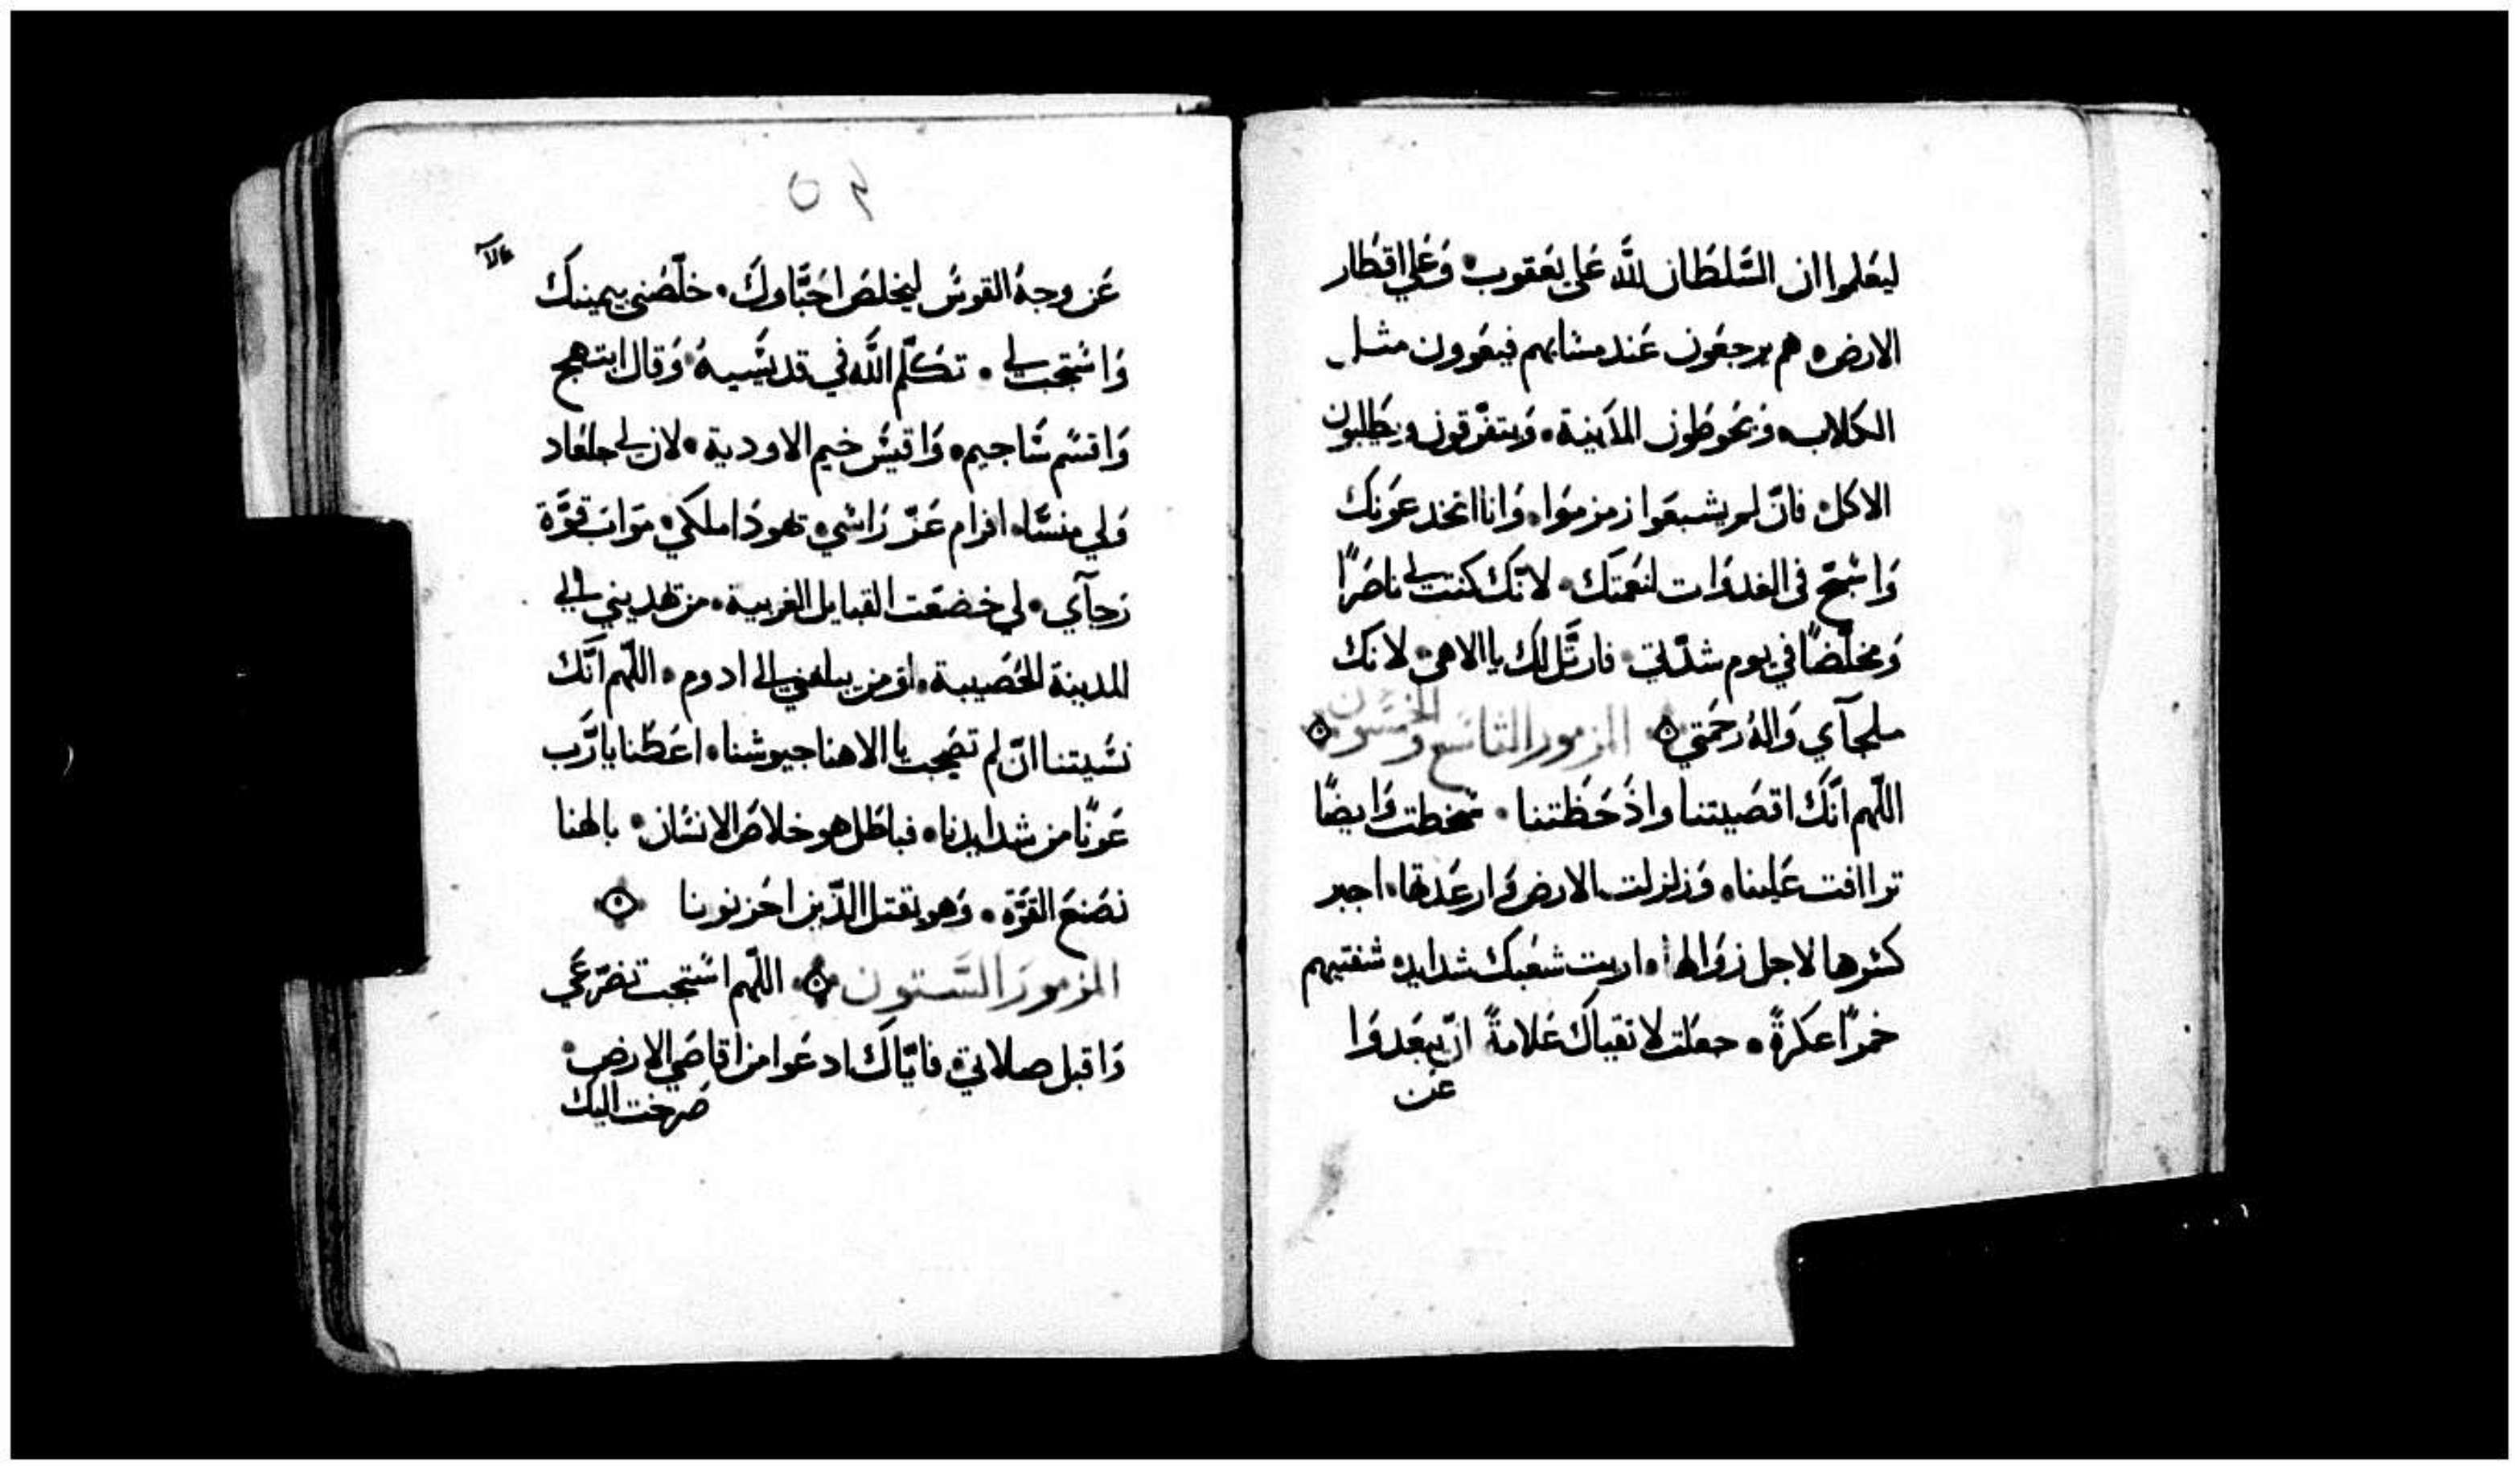 ليعلموا ان السّلطان لله على يعقوب وعلى اقطار
الارض هم يرجعون عند مسايهم فيعوون مثل
الكلاب ويحوطون المدينة ويتفرّقون ويطلبون
الاكل فان لم يشبعوا زمزموا وانا اتخد عونك
واسبّح فى الغدوات لنعمتك لانّك كنت لي ناصرًا
ومخلّصًا في يوم شدّتي فارتّل لك ياالاهى لانك
ملجآي واله رحمتي المزمور التاسع والخمسون
اللّهم انّك اقصيتنا واذ حطتنا سخطت وايضًا
تراافت علينا وزلزلت الارض وارعدتها اجبر
كسرها لاجل زوالها اريت شعبك شدايد سقيتهم
خمرًا عكرةً جعلت لاتقياك علامةً ان يبعدوا
عن
٥٤
عن وجه القوس ليخلص احبّاوك خلّصنى بيمينك
واستجب لي تكلّم الله في قديسيه وقال ابتهج
واقسم ساجيم واقيس خيم الاودية لان لي جلعاد
ولي منسّا افرام عزّ راسي يهودا ملكي مواب قوّة
رجآي لي خضعت القبايل الغريبة من تهديني الى
المدينة الخصيبة او من يبلغني الى ادوم اللّهم انّك
نسيتنا انّ لم تصحب ياالاهنا جيوشنا اعطنا يا ربّ
عونًا من شدايدنا فباطل هو خلاص الانسان بالهنا
نصنع القوّة وهو يقتل الذين احزنونا
المزمور السّتون اللّهم استجب تضرّعي
واقبل صلاتي فايّاك ادعوا من اقاصي الارض
صرخت اليك